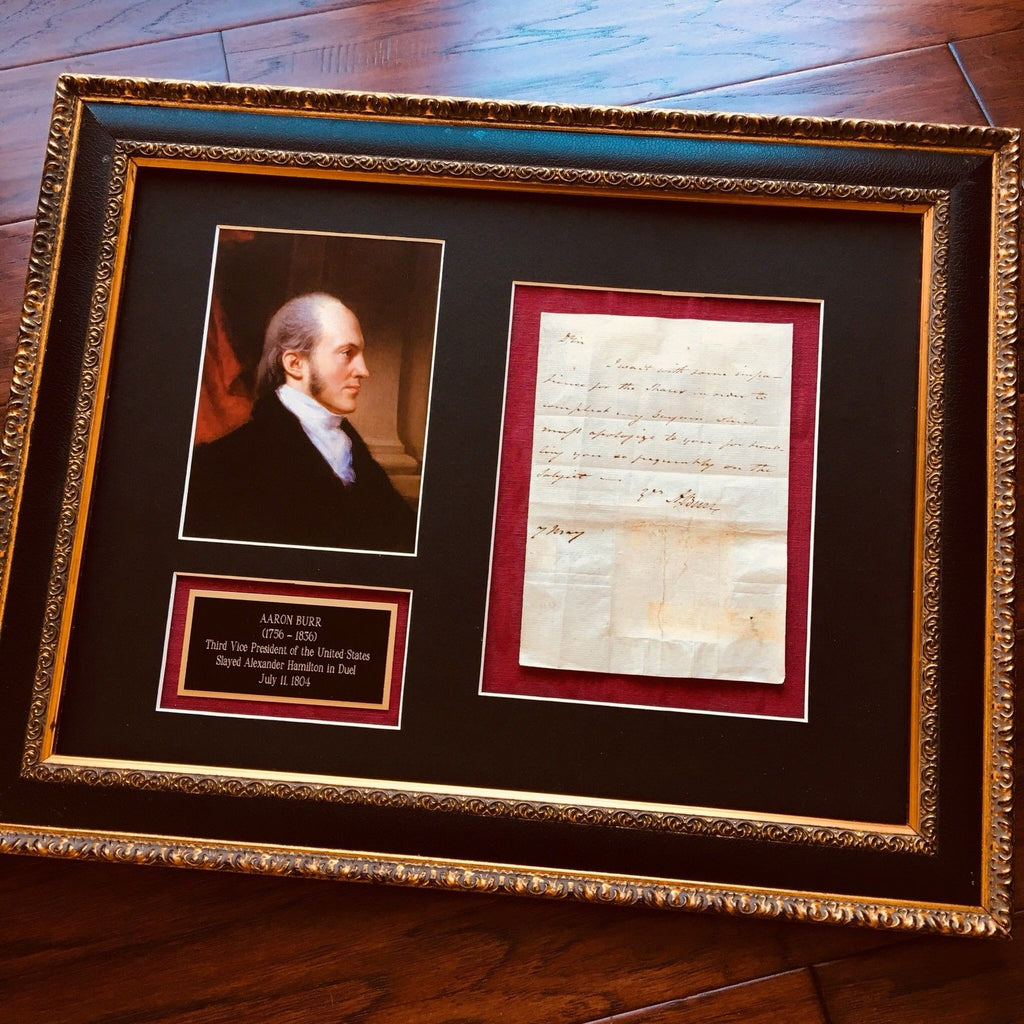 AARON BURR
(1756 - 1836)
Third Vice President of the United States
Slayed Alexander Hamilton in Duel
July 11, 1804
Sir
I wait with some impa-
tience for the in order to
compleat my
must apologize to you for troub
ling you so frequently on the
subject —
Yrs A Burr
7 May